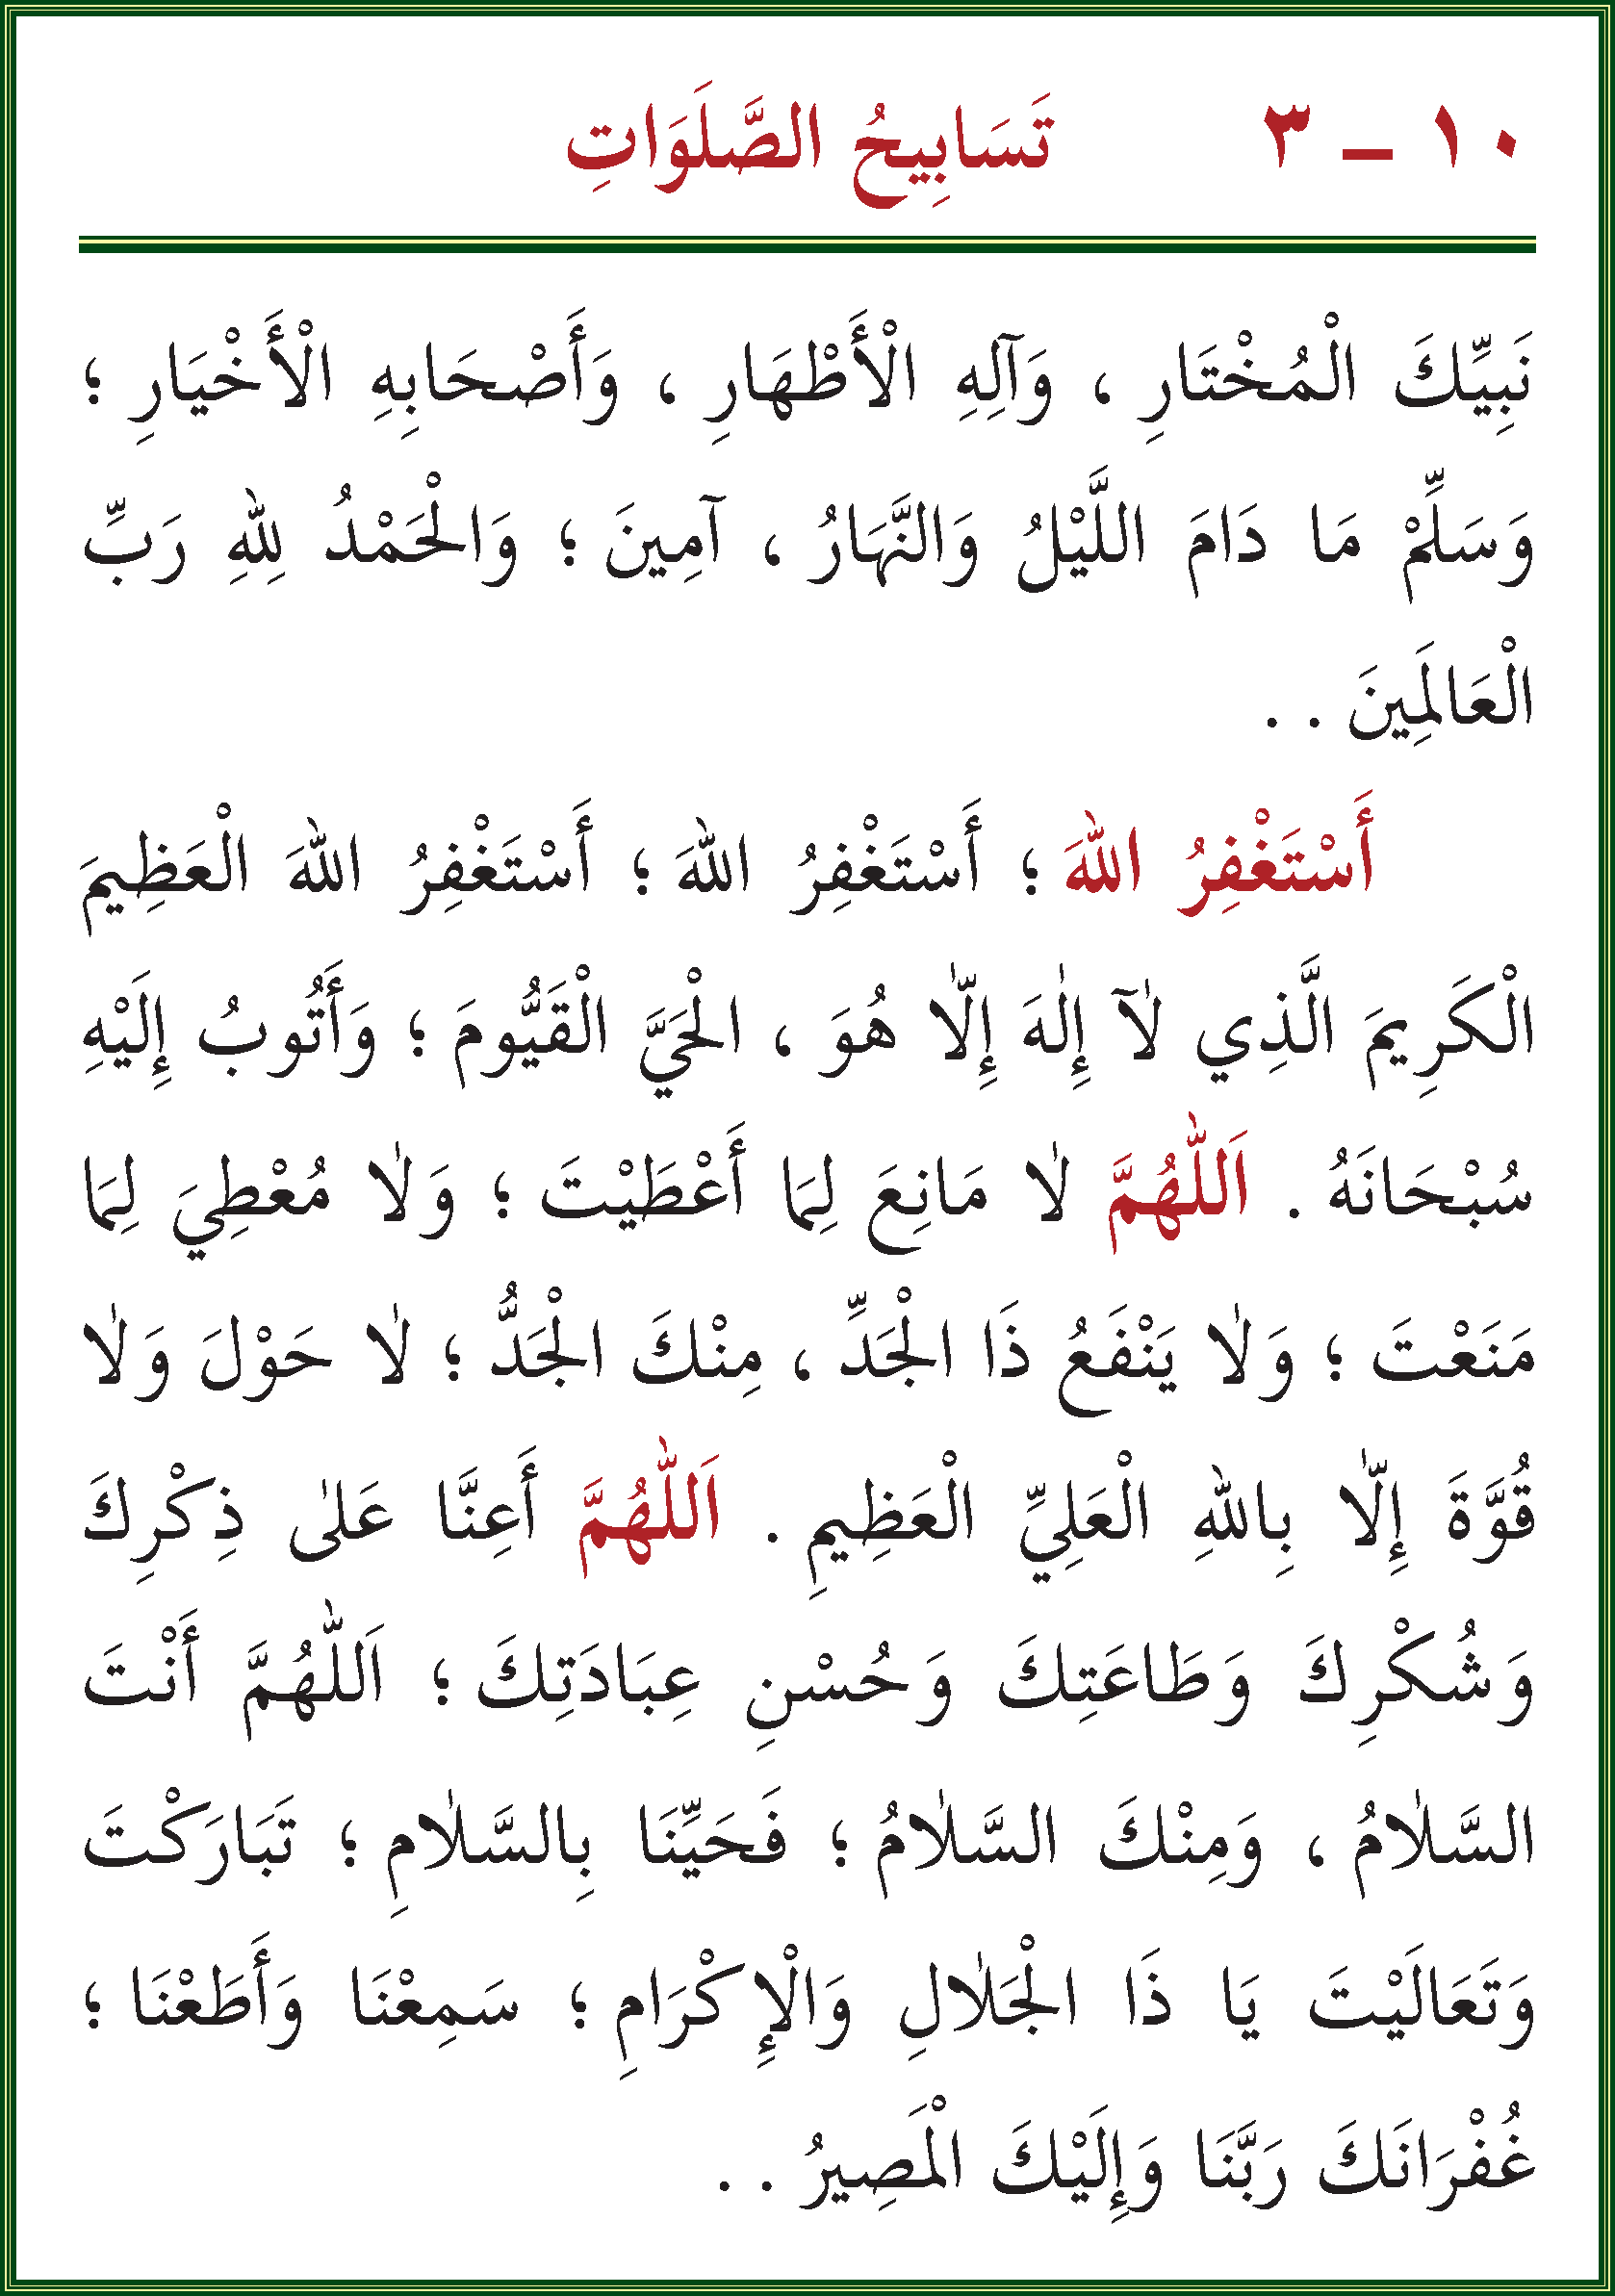 ١٠ ــ ٣ تَسَابِيحُ الصَّلَوَاتِ
نَبِيِّكَ الْمُخْتَارِ ، وَآلِهِ الْأَطْهَارِ ، وَأَصْحَابِهِ الْأَخْيَارِ ؛
وَسَلِّمْ مَا دَامَ اللَّيْلُ وَالنَّهَارُ ، آمِينَ ؛ وَالْحَمْدُ لِلّٰهِ رَبِّ
الْعَالَمِينَ . .
أَسْتَغْفِرُ اللّٰهَ ؛ أَسْتَغْفِرُ اللّٰهَ ؛ أَسْتَغْفِرُ اللّٰهَ الْعَظِيمَ
الْكَرِيمَ الَّذِي لٰآ إِلٰهَ إِلّٰا هُوَ ، الْحَيَّ الْقَيُّومَ ؛ وَأَتُوبُ إِلَيْهِ
سُبْحَانَهُ . اَللّٰهُمَّ لٰا مَانِعَ لِمَا أَعْطَيْتَ ؛ وَلٰا مُعْطِيَ لِمَا
مَنَعْتَ ؛ وَلٰا يَنْفَعُ ذَا الْجَدِّ ، مِنْكَ الْجَدُّ ؛ لٰا حَوْلَ وَلٰا
قُوَّةَ إِلّٰا بِاللّٰهِ الْعَلِيِّ الْعَظِيمِ . اَللّٰهُمَّ أَعِنَّا عَلىٰ ذِكْرِكَ
وَشُكْرِكَ وَطَاعَتِكَ وَحُسْنِ عِبَادَتِكَ ؛ اَللّٰهُمَّ أَنْتَ
السَّلٰامُ ، وَمِنْكَ السَّلٰامُ ؛ فَحَيِّنَا بِالسَّلٰامِ ؛ تَبَارَكْتَ
وَتَعَالَيْتَ يَا ذَا الْجَلٰالِ وَالْإِكْرَامِ ؛ سَمِعْنَا وَأَطَعْنَا ؛
غُفْرَانَكَ رَبَّنَا وَإِلَيْكَ الْمَصِيرُ . .